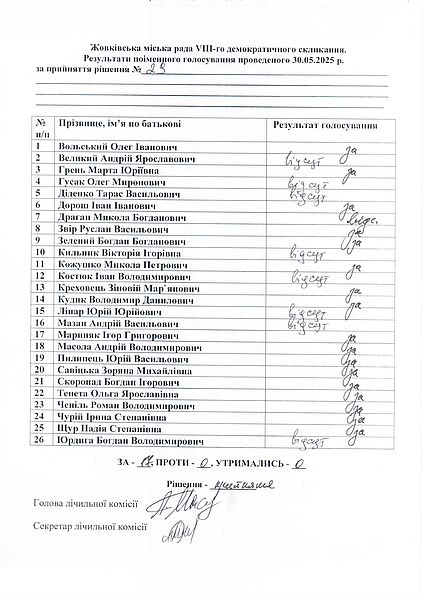 Жовківська міська рада VIII-го демократичного скликання.
Результати поіменного голосування проведеного 30.05.2025 р.
за прийняття рішення № 23
№ п/п Прізвище, ім’я по батькові Результат голосування
1 Вольський Олег Іванович за
2 Великий Андрій Ярославович відсут
3 Грень Марта Юріївна за
4 Гусак Олег Миронович відсут
5 Діденко Тарас Васильович відсут
6 Дорош Іван Іванович за
7 Драган Микола Богданович відс.
8 Звір Руслан Васильович за
9 Зелений Богдан Богданович за
10 Кильник Вікторія Ігорівна відсут
11 Кожушко Микола Петрович за
12 Косток Іван Володимирович відсут
13 Креховець Зіновій Мар`янович за
14 Кудик Володимир Данилович за
15 Ліпар Юрій Юрійович відсут
16 Мазан Андрій Васильович відсут
17 Мариняк Ігор Григорович за
18 Масола Андрій Володимирович за
19 Пилипець Юрій Васильович за
20 Савіцька Зоряна Михайлівна за
21 Скоропад Богдан Ігорович за
22 Тенета Ольга Ярославівна за
23 Чепіль Роман Володимирович за
24 Чурій Ірина Степанівна за
25 Щур Надія Степанівна за
26 Юрдига Богдан Володимирович відсут
ЗА - 17, ПРОТИ - 0, УТРИМАЛИСЬ - 0
Рішення - прийняте
Голова лічильної комісії
Секретар лічильної комісії